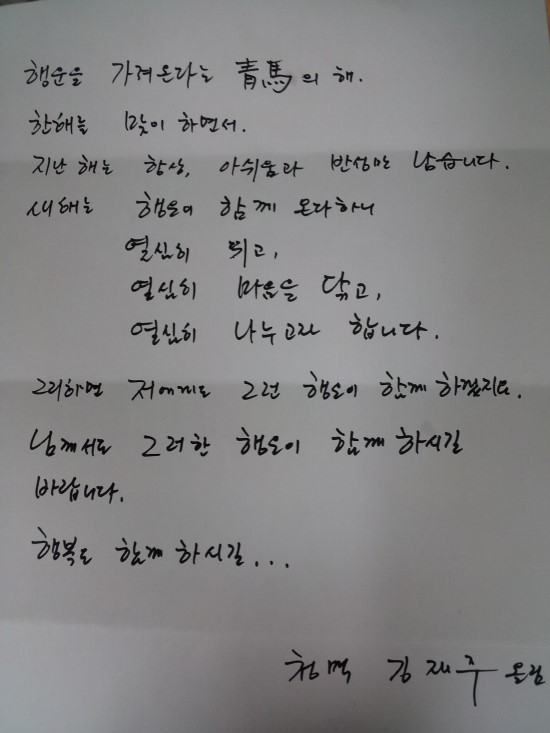 행운을 가져온다는 靑馬의 해.
한해를 맞이 하면서.
지난 해는 항상, 아쉬움과 반성만 남습니다.
새해는 행운이 함께 온다하니
열심히 뛰고,
열심히 마음을 닦고,
열심히 나누고자 합니다.
그리하면 저에게도 그런 행운이 함께 하겠지요.
님께서도 그러한 행운이 함께 하시길
바랍니다.
행복도 함께 하시길...
김재주 올림